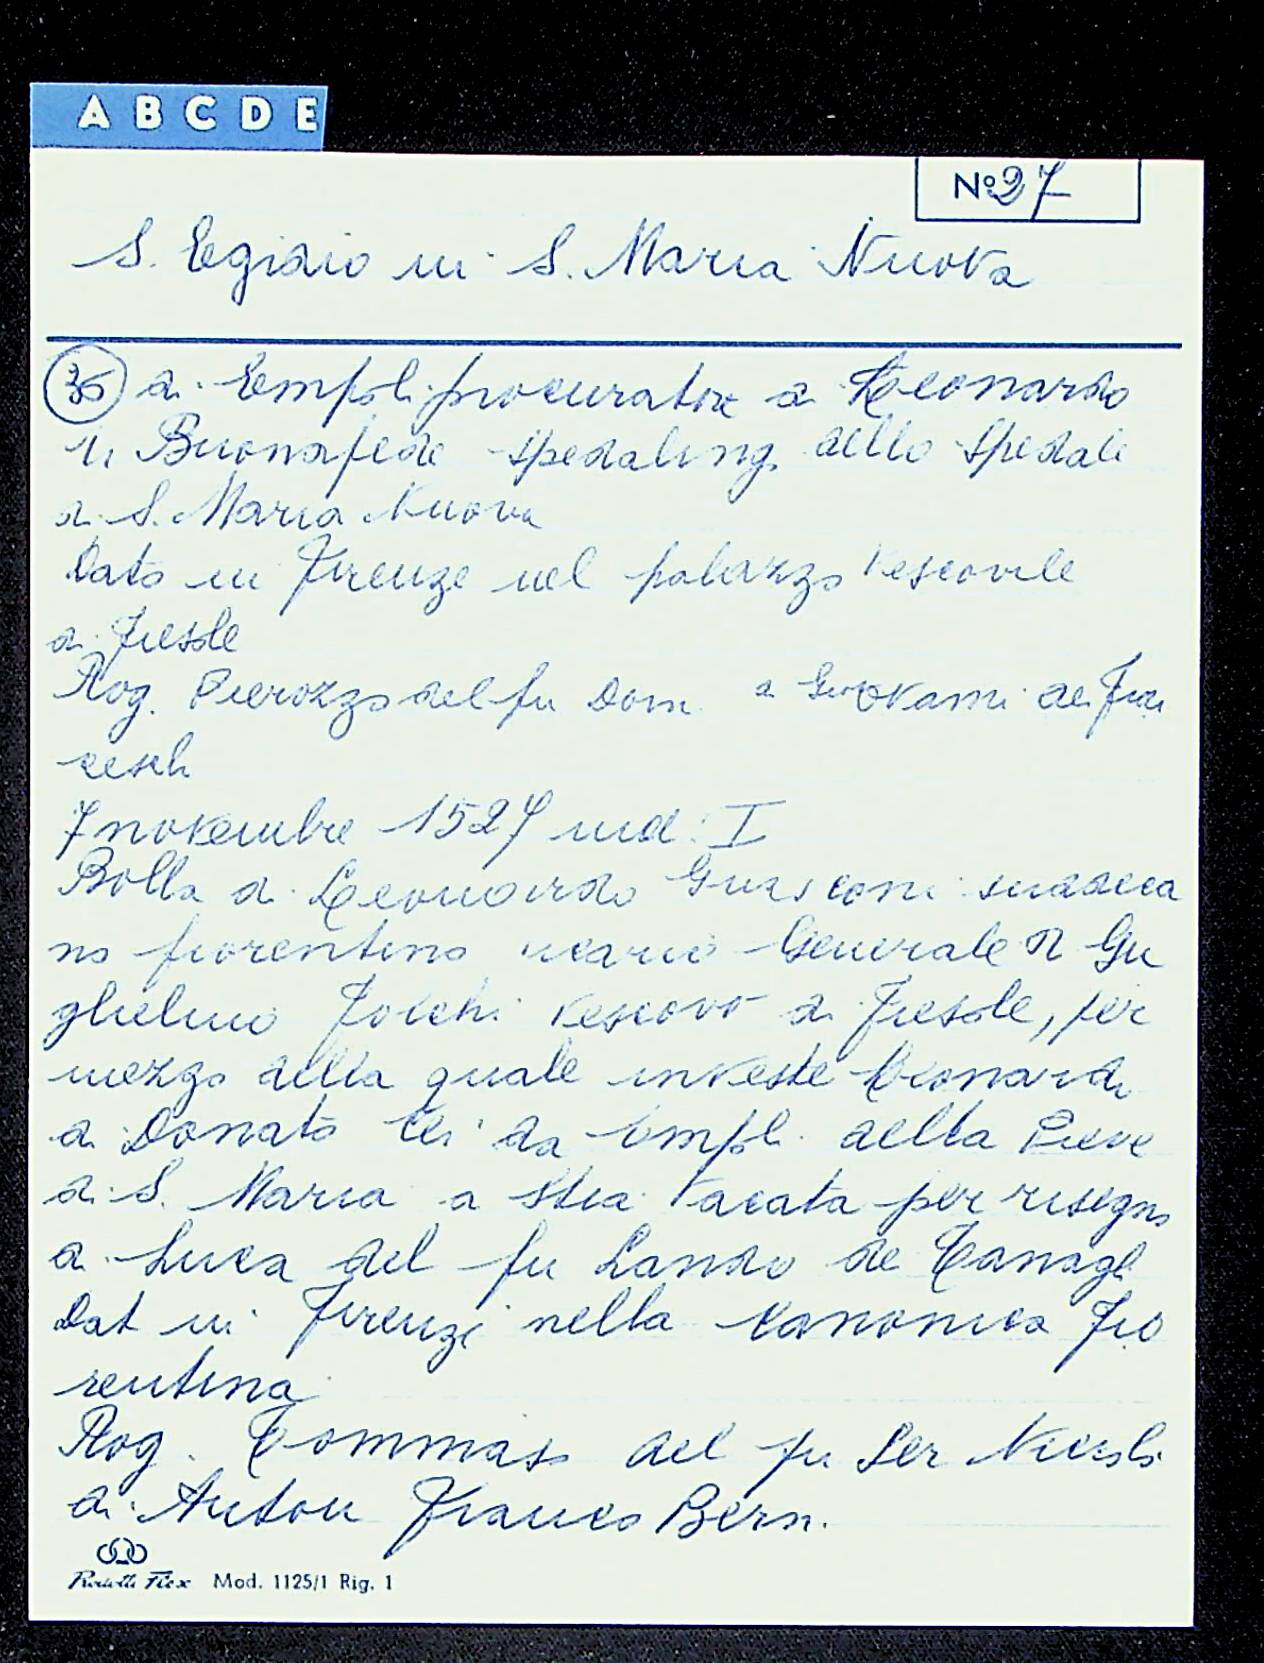 A B C D E
No 27
S. Egidio in S. Maria Nuova
36 di Empoli procuratore di Leonardo
di Buonafede spedaling. dello Spedale
di S. Maria Nuova
Dato in Firenze nel palazzo Vescovile
di Fiesole
Rog. Pierozzo del fu Dom. di Giovanni dei Fran
ceschi
7 novembre 1527 ind. I
Bolla di Leonardo suddeca
no fiorentino vicario Generale di Gu
glielmo Folchi Vescovo di Fiesole, per
mezzo della quale investe Leonardo
di Donato da Empoli della Pieve
di S. Maria a Stia vacata per risegna
di Luca del fu Lando de Canagl
Dat in Firenze nella canonica Fio
rentina
Rog. Tommaso del fu Ser Niccolò
di Anton Franco Bern.
Mod. 1125/1 Rig. 1